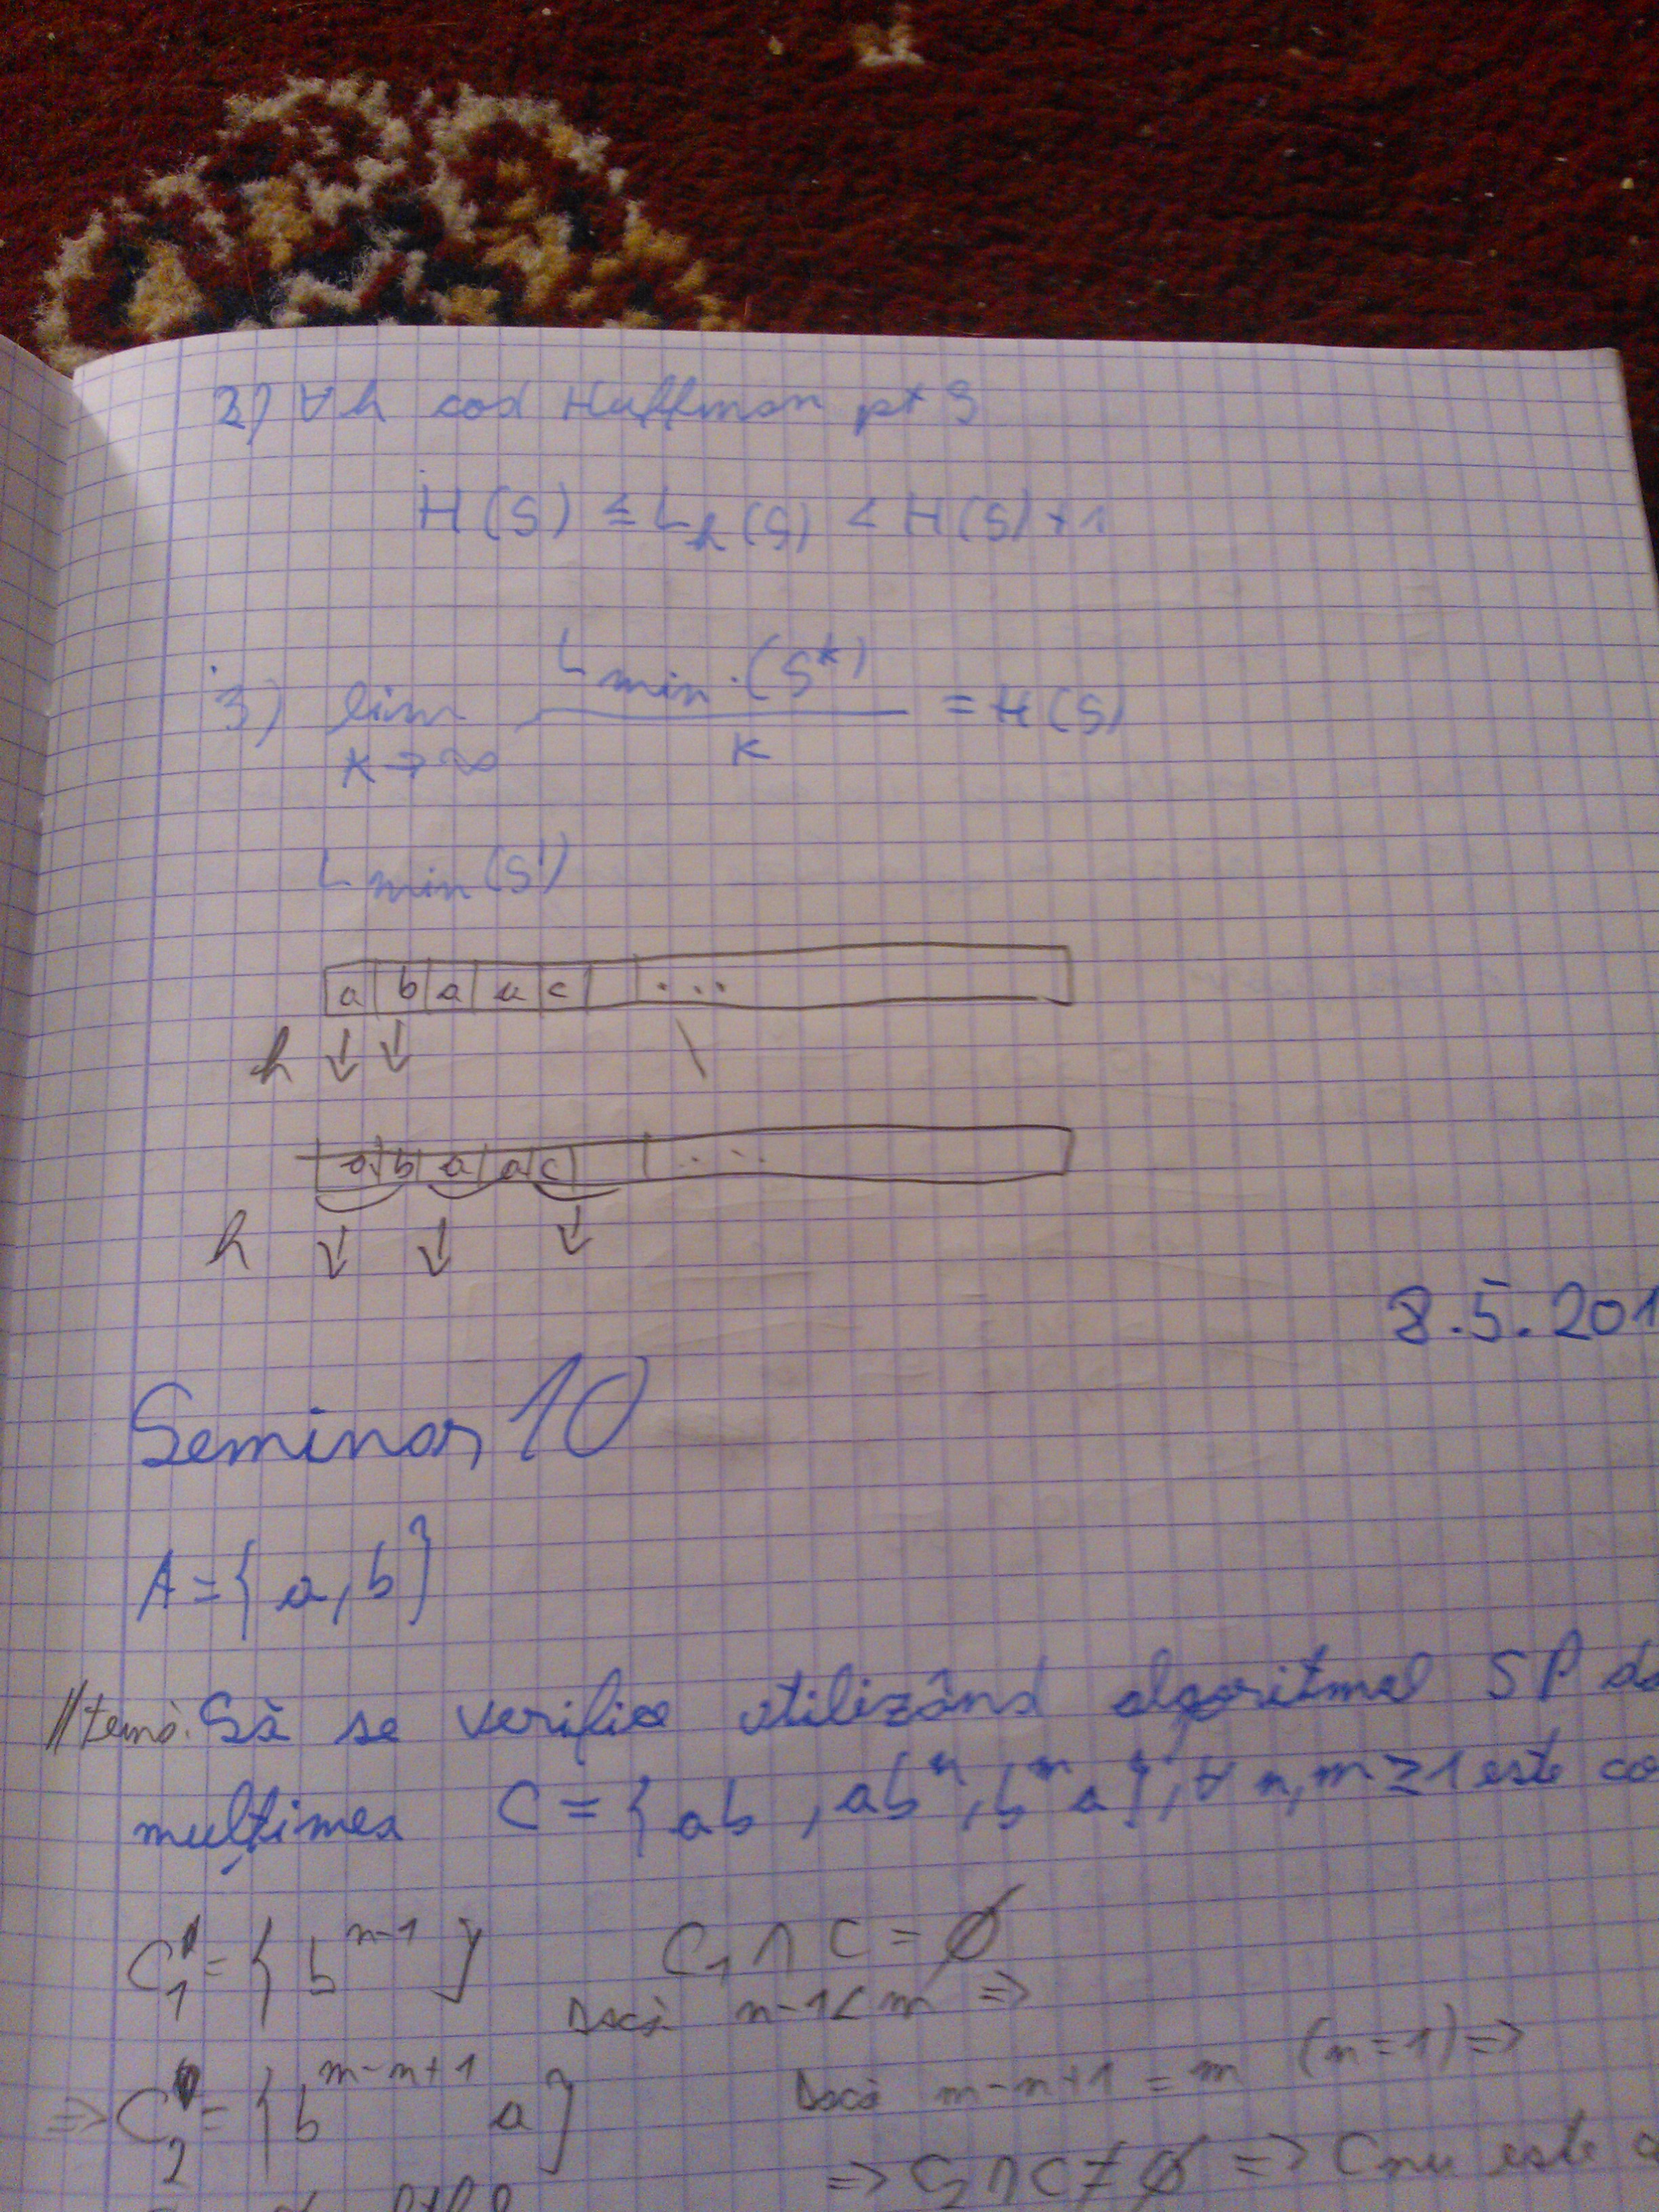 2) ∀ h cod Huffman pt S
H(S) ≤ L_h(S) < H(S)+1
3) lim K→∞ L min.(S^k) / K = H(S)
L min(S^1)
a b a a c ...
h ↓ ↓ \
a b a a c ...
h ↓ ↓ ↓
8.5.201
Seminar 10
A={a,b}
//temă. Să se verifice utilizând algoritmul SP da
mulțimea C={ab, ab^n, b^m a}, ∀ n,m≥1 este co
C_1={b^{n-1}} C_1∩C=∅
Dacă n-1<m =>
=> C_2={b^{m-n+1} a} Dacă m-n+1=m (n=1)=>
=> C_2∩C≠∅ => C nu este c